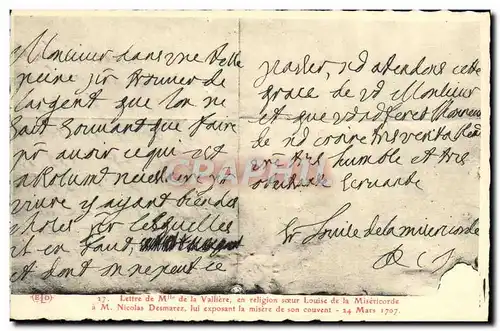 Monsieur dans une telle
peine pr trouver de
largent que lon ne
sait souvant que faire
pr avoir ce qui est
absolumt necessaire pr
vivre y ayant bien des
choses pr lesquelles
il en faut
et dont on ne peut ce
passer, nd atendons cette
grace de vs Monsieur
et que vs
de nd croire
vre tres humble et tres
obeissante servante
Sr Louise de la misericorde
CPARAMA
ELD
17. Lettre de Mlle de la Vallière, en religion sœur Louise de la Miséricorde
à M. Nicolas Desmarez, lui exposant la misère de son couvent - 24 Mars 1707.